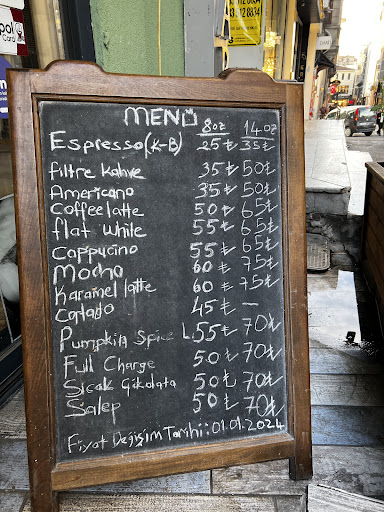 MENÜ
8oz 14oz
Espresso(K-B) 25₺ 35₺
filtre kahve 35₺ 50₺
Americano 35₺ 50₺
Coffee latte 50₺ 65₺
flat white 55₺ 65₺
Cappucino 55₺ 65₺
Mocha 60₺ 75₺
Karamel latte 60₺ 75₺
Cortado 45₺ —
Pumpkin Spice L. 55₺ 70₺
Full Charge 50₺ 70₺
Sıcak Çikolata 50₺ 70₺
Salep 50₺ 70₺
Fiyat Değişim Tarihi: 01.01.2024